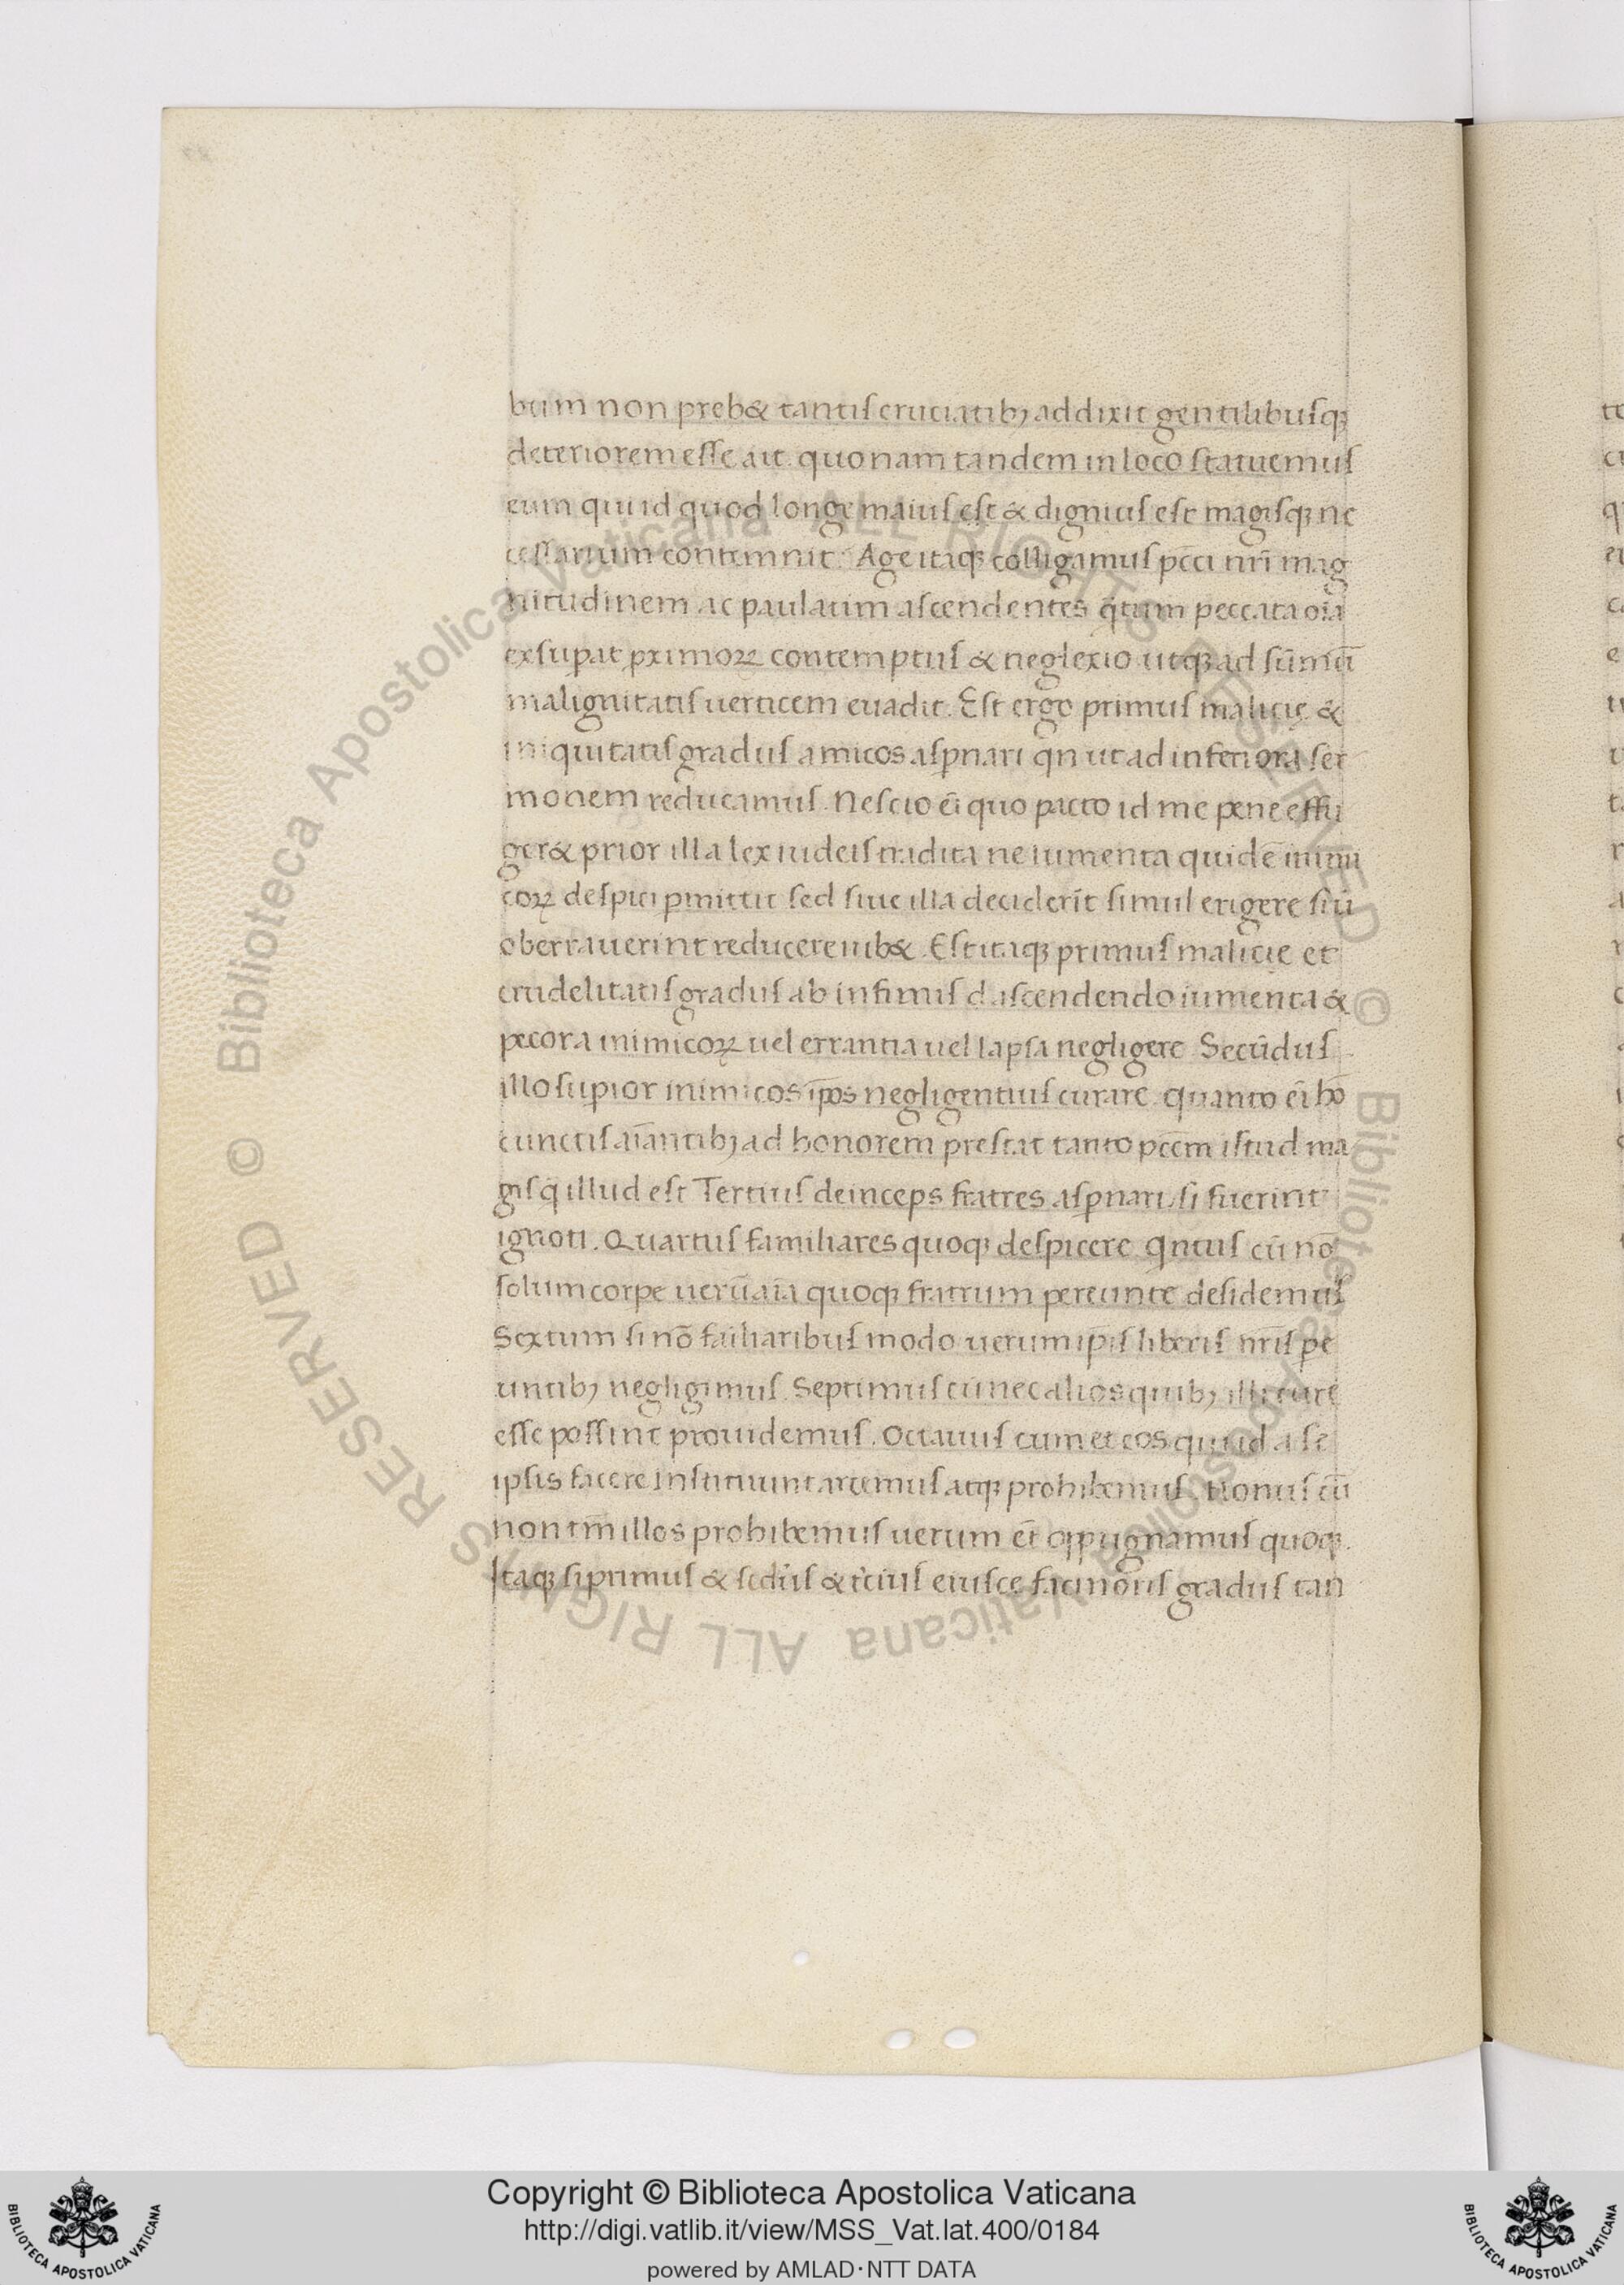 bum non preb& tantiſ cruciatibꝫ addixit gentilibuſqꝫ
deteriorem eſſe ait. quonam tandem in loco ſtatuemuſ
eum qui id quod longe maiuſ eſt & digniuſ eſt magiſqꝫ ne
ceſſarium contemnit. Age itaqꝫ colligamuſ pc̄ci nr̄i mag
nitudinem ac paulatim aſcendentes q̄tum peccata oīa
exſupat ꝓximoꝝ contemptuſ & neglexio utqꝫ ad ſūmū
malignitatiſ uerticem euadit. Eſt ergo primuſ malicię &
iniquitatiſ graduſ amicos aſꝑnari qn ut ad inferiora ſer
monem reducamuſ. Neſcio ei̅ quo pacto id me pene effu
ger& prior illa lex iudeiſ tradita ne iumenta quidē inimi
coꝝ deſpici ꝑmittit ſed ſiue illa deciderīt ſimul erigere ſiū
oberrauerint reducere iub&. Eſt itaqꝫ primuſ malicię et
crudelitatiſ graduſ ab infimiſ d aſcendendo iumenta &
pecora inimicoꝝ uel errantia uel lapſa negligere. Secūduſ
illo ſuꝑior inimicos ip̄os negligentiuſ curare. quanto ei̅ hō
cunctiſ aīantibꝫ ad honorem preſtat tanto pc̄cm iſtud ma
giſ q̄ illud eſt Tertiuſ deinceps fratres aſꝑnari ſi fuerint
ignoti. Quartuſ familiares quoqꝫ deſpicere. qntuſ cū nō
ſolum corpe uerū aīa quoqꝫ fratrum pereunte deſidemuſ
Sextum ſi nō fāiliaribuſ modo uerum ip̄iſ liberiſ nr̄iſ pe
untibꝫ negligimuſ. Septimuſ cū nec alios quibꝫ illi curę
eſſe poſſint prouidemuſ. Octauuſ cum et eos qui id a ſe
ipſis facere inſtituunt arcemuſ atqꝫ prohibemuſ. Nonuſ cū
non tm̄ illos prohibemuſ uerum et̄ oppugnamuſ quoqꝫ.
Itaqꝫ ſi primuſ & ſecd̄uſ & tciuſ eiuſce facinoriſ graduſ tan
Copyright © Biblioteca Apostolica Vaticana
http://digi.vatlib.it/view/MSS_Vat.lat.400/0184
powered by AMLAD·NTT DATA